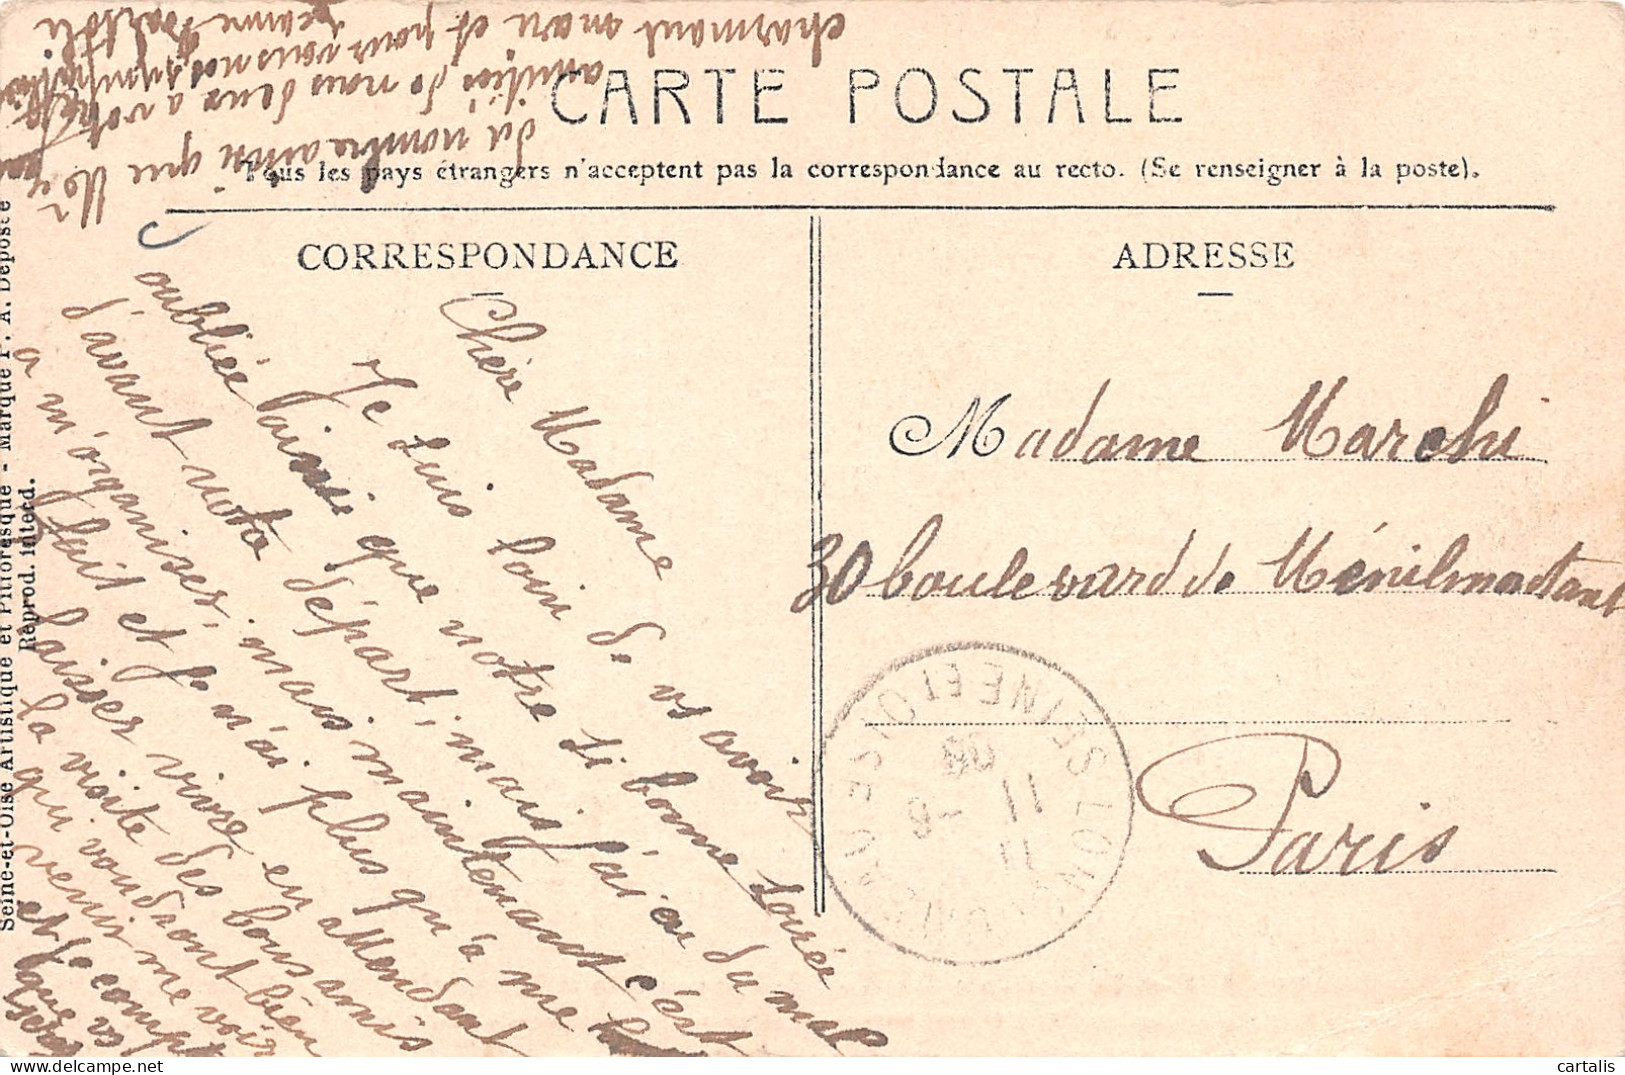 CARTE POSTALE
Tous les pays étrangers n'acceptent pas la correspondance au recto. (Se renseigner à la poste).
CORRESPONDANCE
ADRESSE
Chère Madame
Je suis loin de vs avoir
oubliée ainsi que notre si bonne soirée
d'avant note départ, mais j'ai eu du mal
a m'organiser, mais maintenant c'est
fait et je n'ai plus qu'a me
laisser vivre en attendant
la visite des bons amis
qui voudront bien
venir me voir
et je compte
que vs
serez
du nombre ainsi que
amitiés de nous deux a votre
charmant mari et pour vous nos sympathies
Jeanne
Madame Marchi
30 boulevard de Ménilmontant
Paris
SEINE ET OISE
11
11 - 8
08
Seine-et-Oise Artistique et Pittoresque - Marque P. A. Déposée
Reprod. interd.
cartalis